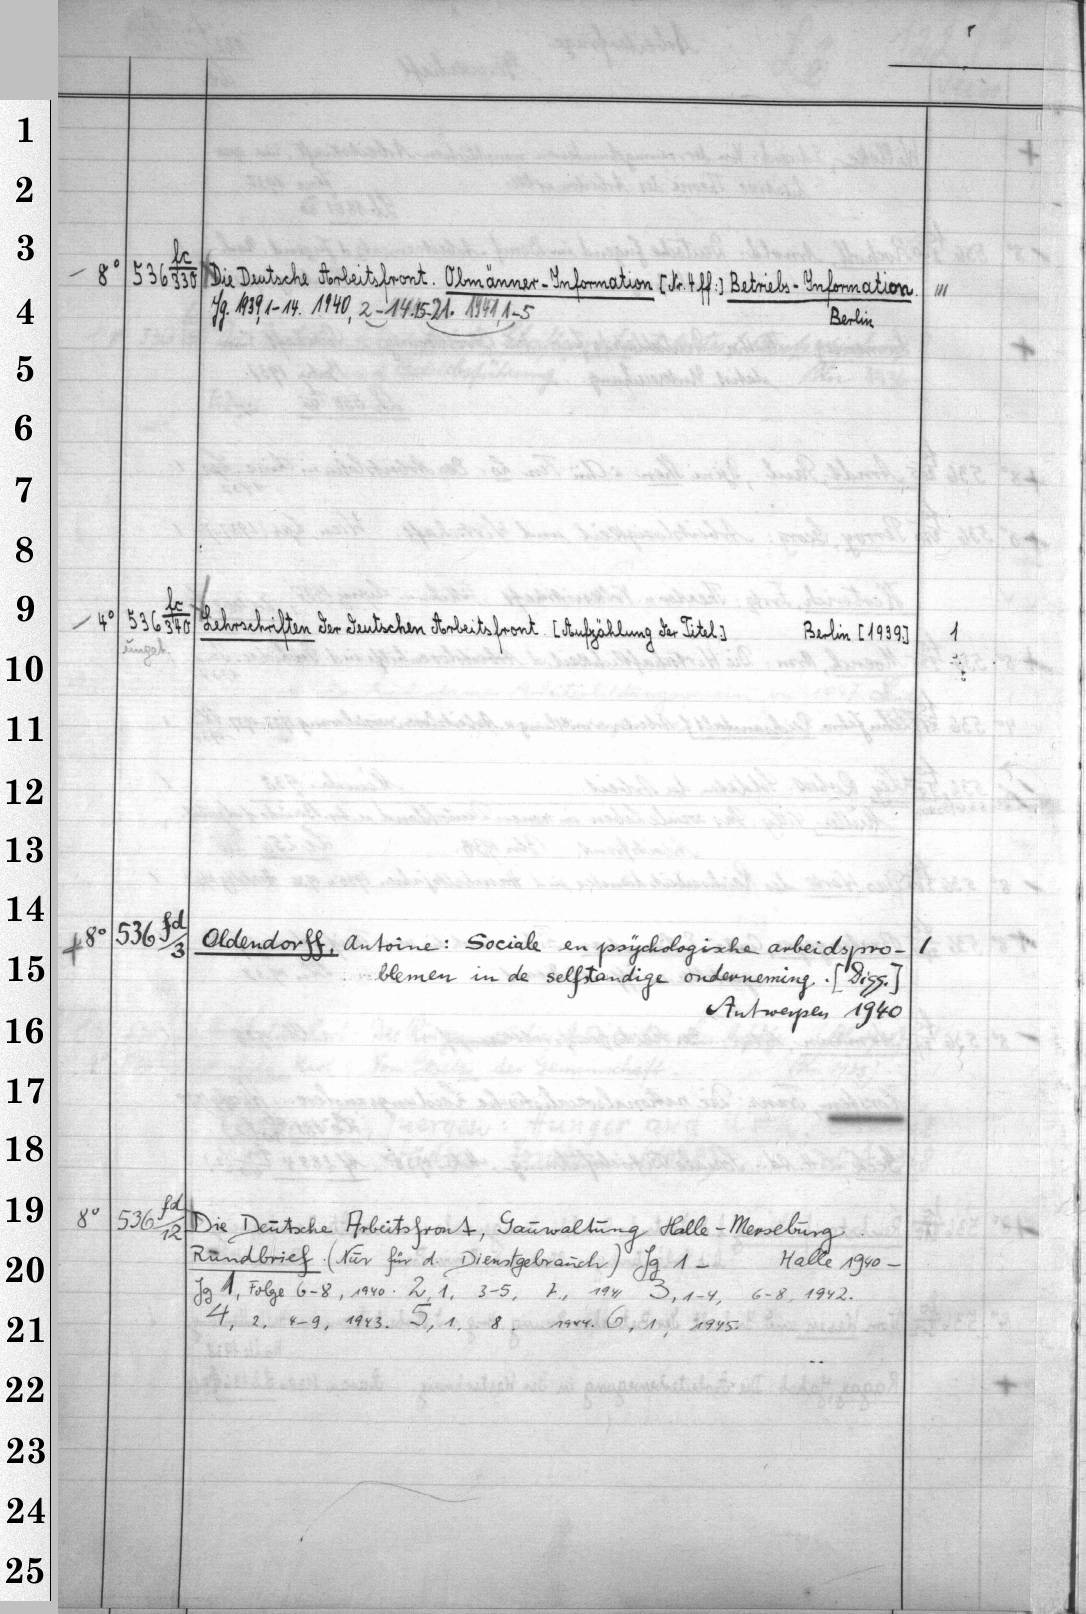 1
2
3
8° 536 fc/330 Die Deutsche Arbeitsfront. Obmänner-Information [Nr. 4 ff:] Betriebs-Information. III
4
Jg. 1939, 1-14. 1940, 2-14. 15-21. 1941, 1-5 Berlin
5
6
7
8
9
4° 536 fc/340 Lehrschriften der Deutschen Arbeitsfront. [Aufzählung der Titel] Berlin [1939.] 1
10
11
12
13
14
+ 8° 536 fd/3 Oldendorff, Antoine: Sociale en psychologische arbeidspro- 1
15
blemen in de selfstandige onderneming. [Diss.]
16
Antwerpen 1940
17
18
19
8° 536 fd/12 Die Deutsche Arbeitsfront, Gauwaltung Halle-Merseburg.
20
Rundbrief. (Nur für d. Dienstgebrauch) Jg 1 - Halle 1940 -
Jg 1, Folge 6-8, 1940. 2, 1, 3-5, 7, 1941 3, 1-4, 6-8, 1942.
21
4, 2, 4-9, 1943. 5, 1, 8. 1944. 6, 1, 1945.
22
23
24
25